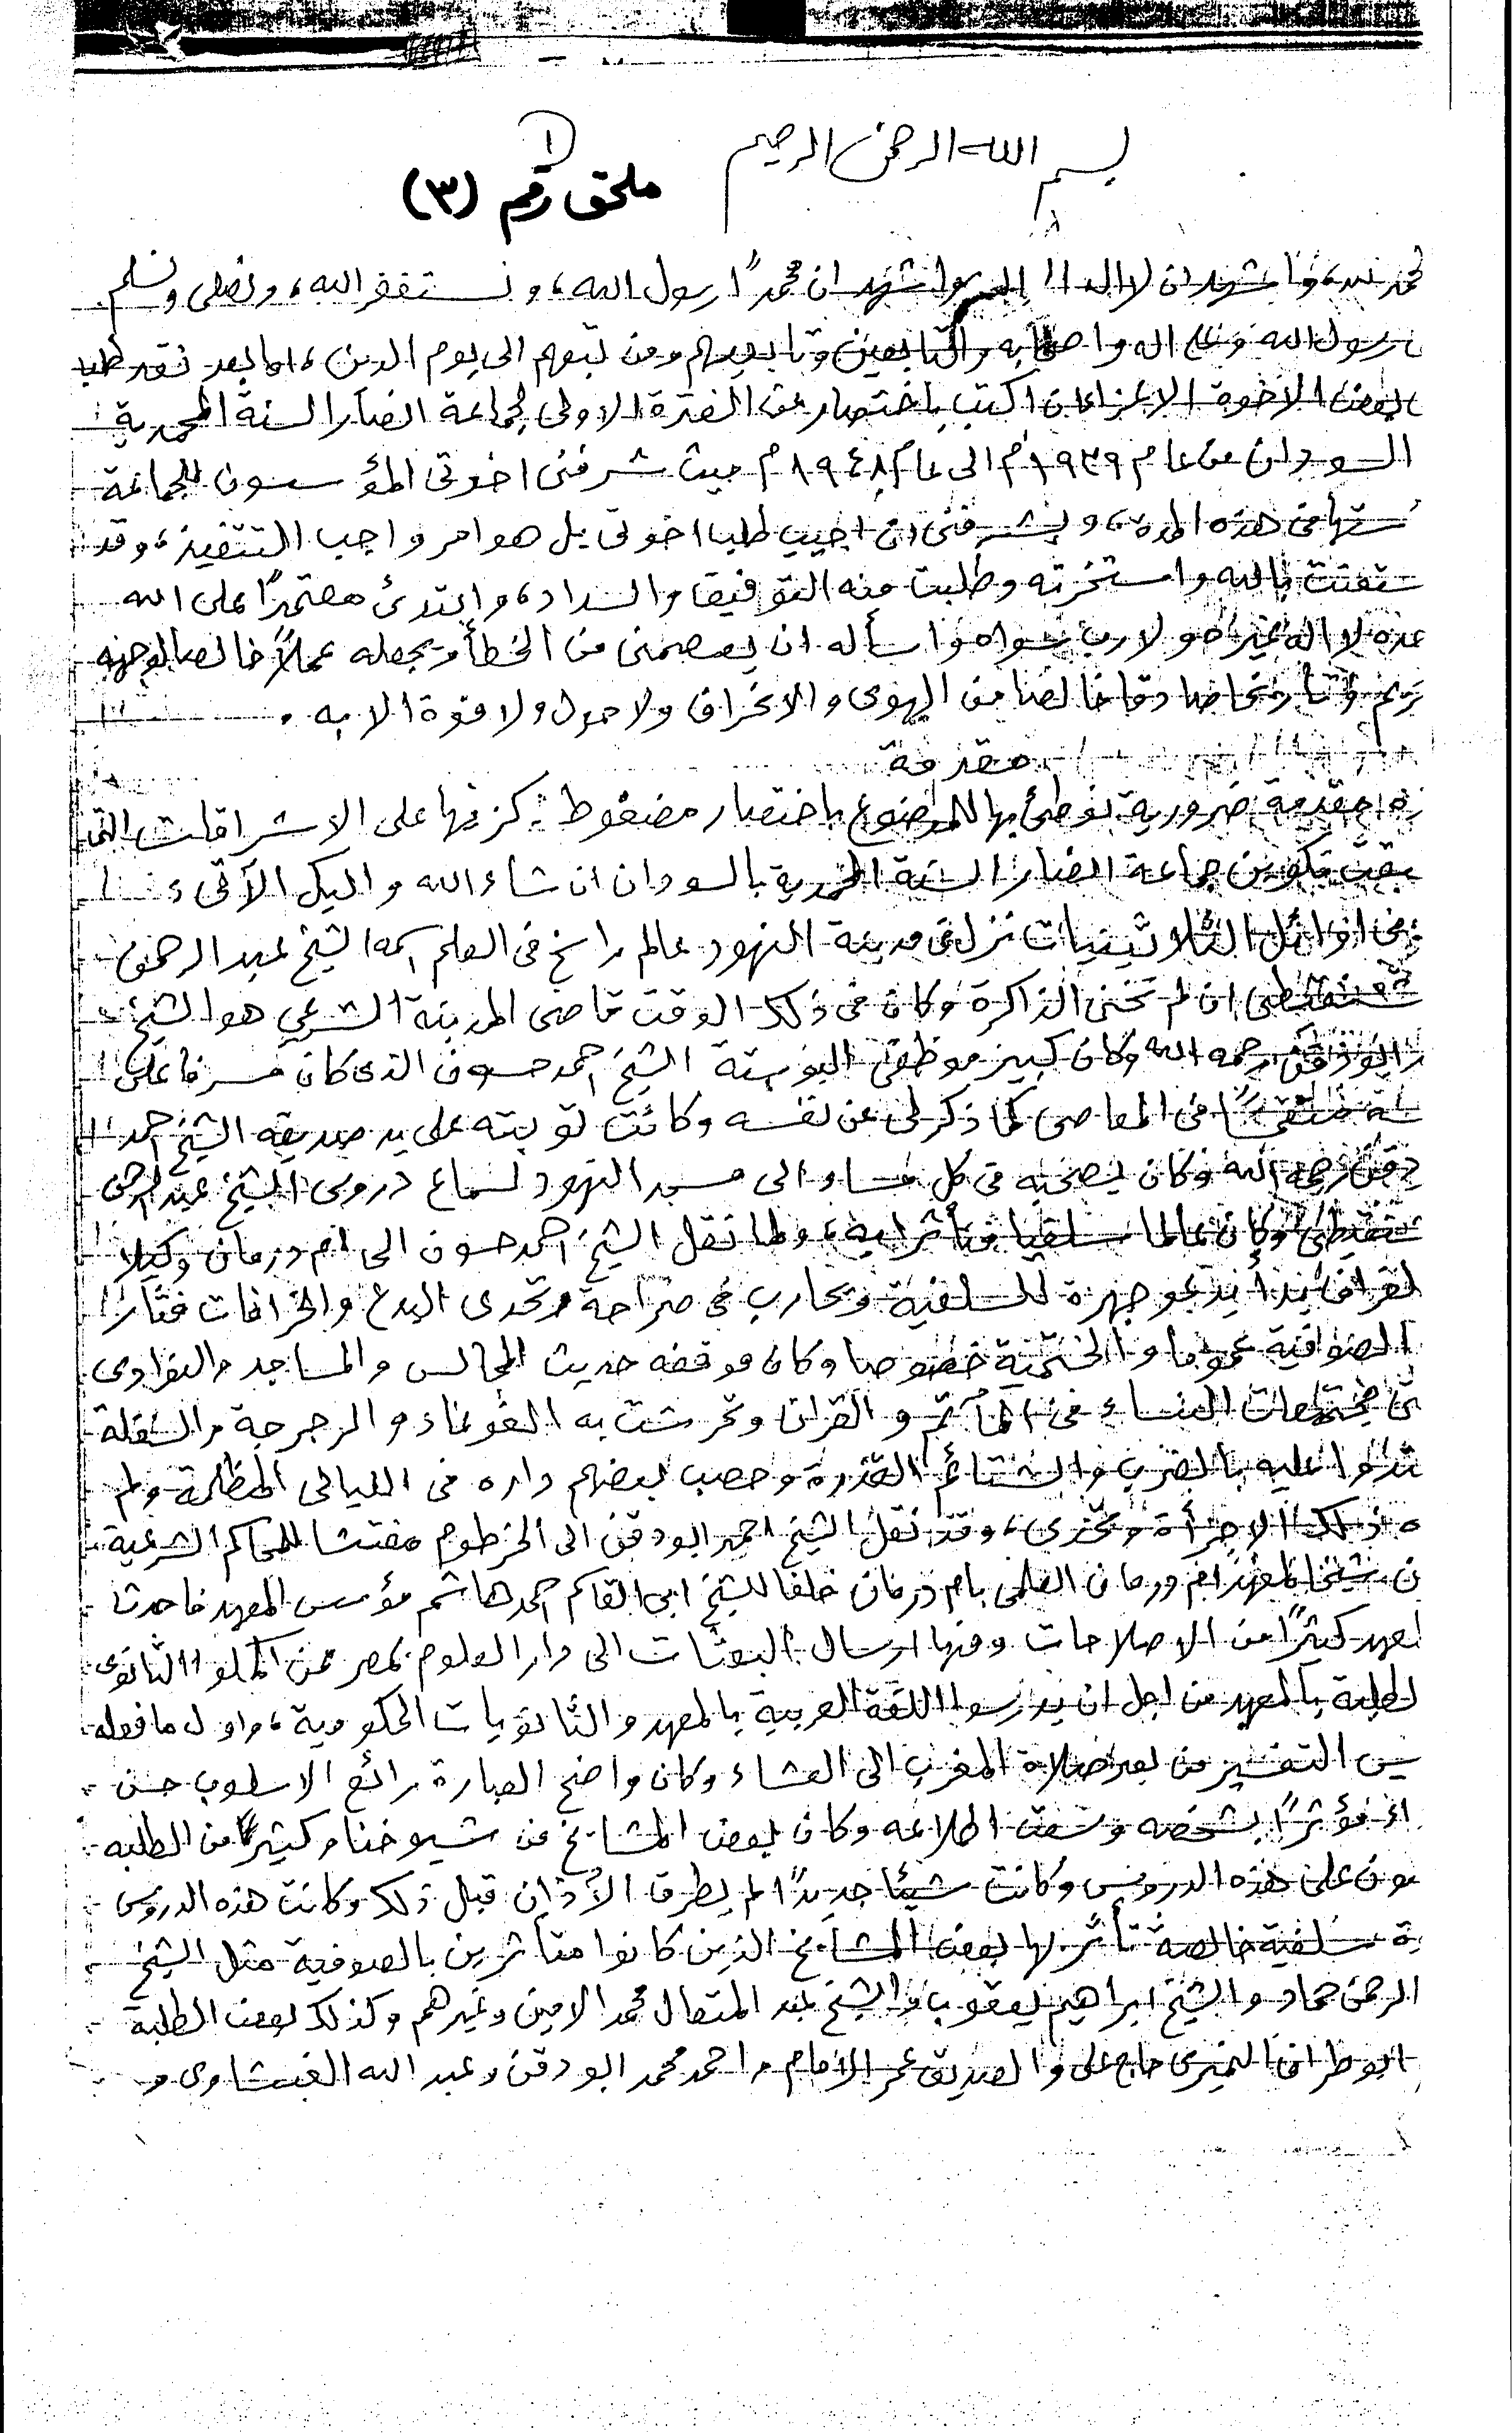 ١
بسم الله الرحمن الرحيم
ملحق رقم (٣)
لحمد لله، واشهد ان لا اله الا الله واشهد ان محمداً رسول الله، ونستغفر الله، ونصلى ونسلم
رسول الله وعلى اله واصحابه والتابعين وتابعيهم ومن تبعهم الى يوم الدين، اما بعد فقد طلب
بعض الاخوة الاعزاء ان اكتب باختصار عن الفترة الاولى لجماعة انصار السنة المحمدية
السودان من عام ١٩٣٩م الى عام ١٩٤٨م حيث شرفنى اخوتى المؤسسون للجماعة
ستها فى هذه المدة، ويشرفنى ان اجيب طلب اخوتى بل هو امر واجب التنفيذ، وقد
ستعنت بالله واستخرته وطلبت منه التوفيق والسداد، وابتدئ معتمداً على الله
حده لا اله غيره ولا رب سواه واسأله ان يعصمنى من الخطأ ويجعله عملاً خالصا لوجهه
ريم وتأريخا صادقا خالصا من الهوى والانحراف ولا حول ولا قوة الا به .
مقدمة
ذه مقدمة ضرورية نوطئ بها للموضوع باختصار مضغوط نركز فيها على الاشراقات التى
بقت تكوين جماعة انصار السنة المحمدية بالسودان ان شاء الله واليك الآتى :
فى اوائل الثلاثينيات نزل فى مدينة النهود عالم راسخ فى العلم اسمه الشيخ عبد الرحمن
شنقيطى ان لم تخنى الذاكرة وكان فى ذلك الوقت قاضى المدينة الشرعي هو الشيخ
ابو دقن رحمه الله وكان كبير موظفى البوستة الشيخ احمد حسون الذى كان مسرفا على
سه منغمساً فى المعاصى كما ذكر لى عن نفسه وكانت توبته على يد صديقه الشيخ احمد
دقن رحمه الله وكان يصحبه فى كل مساء الى مسجد النهود لسماع دروس الشيخ عبد الرحمن
شنقيطى وكان عالما سلفيا فتأثر به، ولما نقل الشيخ احمد حسون الى ام درمان وكيلا
لغراف بدأ يدعو جهرة للسلفية ويحارب فى صراحة وتحدى البدع والخرافات فثار
الصوفية عموما والختمية خصوصا وكان موقفه حديث المجالس والمساجد والنوادى
تى مجتمعات النساء فى المآتم والقران وتحرشت به الغوغاء والرجرجة والسفلة
تدوا عليه بالضرب والشتائم القذرة وحصب بعضهم داره فى الليالى المظلمة ولم
ه ذلك الا جرأة وتحدى، وقد نقل الشيخ احمد ابو دقن الى الخرطوم مفتشا للمحاكم الشرعية
ن شيخا لمعهد ام درمان العلمى بام درمان خلفا للشيخ ابى القاسم احمد هاشم مؤسس المعهد فاحدث
لمعهد كثيراً من الاصلاحات ومنها ارسال البعثات الى دار العلوم بمصر ممن اكملوا الثانوى
لطلبة بالمعهد من اجل ان يدرسوا اللغة العربية بالمعهد والثانويات الحكومية، واول ما فعله
يس التفسير من بعد صلاة المغرب الى العشاء وكان واضح العبارة رائع الاسلوب حسن
اء مؤثراً بشخصه وسعة اطلاعه وكان بعض المشايخ من شيوخنا وكثيراً من الطلبه
بون على هذه الدروس وكانت شيئا جديداً لم يطرق الأذان قبل ذلك وكانت هذه الدروس
ة سلفية خالصة تأثر بها بعض المشايخ الذين كانوا متأثرين بالصوفية مثل الشيخ
الرحمن حماد والشيخ ابراهيم يعقوب والشيخ عبد المتعال محمد الامين وغيرهم وكذلك بعض الطلبة
ابو طراف النميرى حاج على والصديق عمر الامام واحمد محمد ابو دقن وعبد الله الغبشاوى و